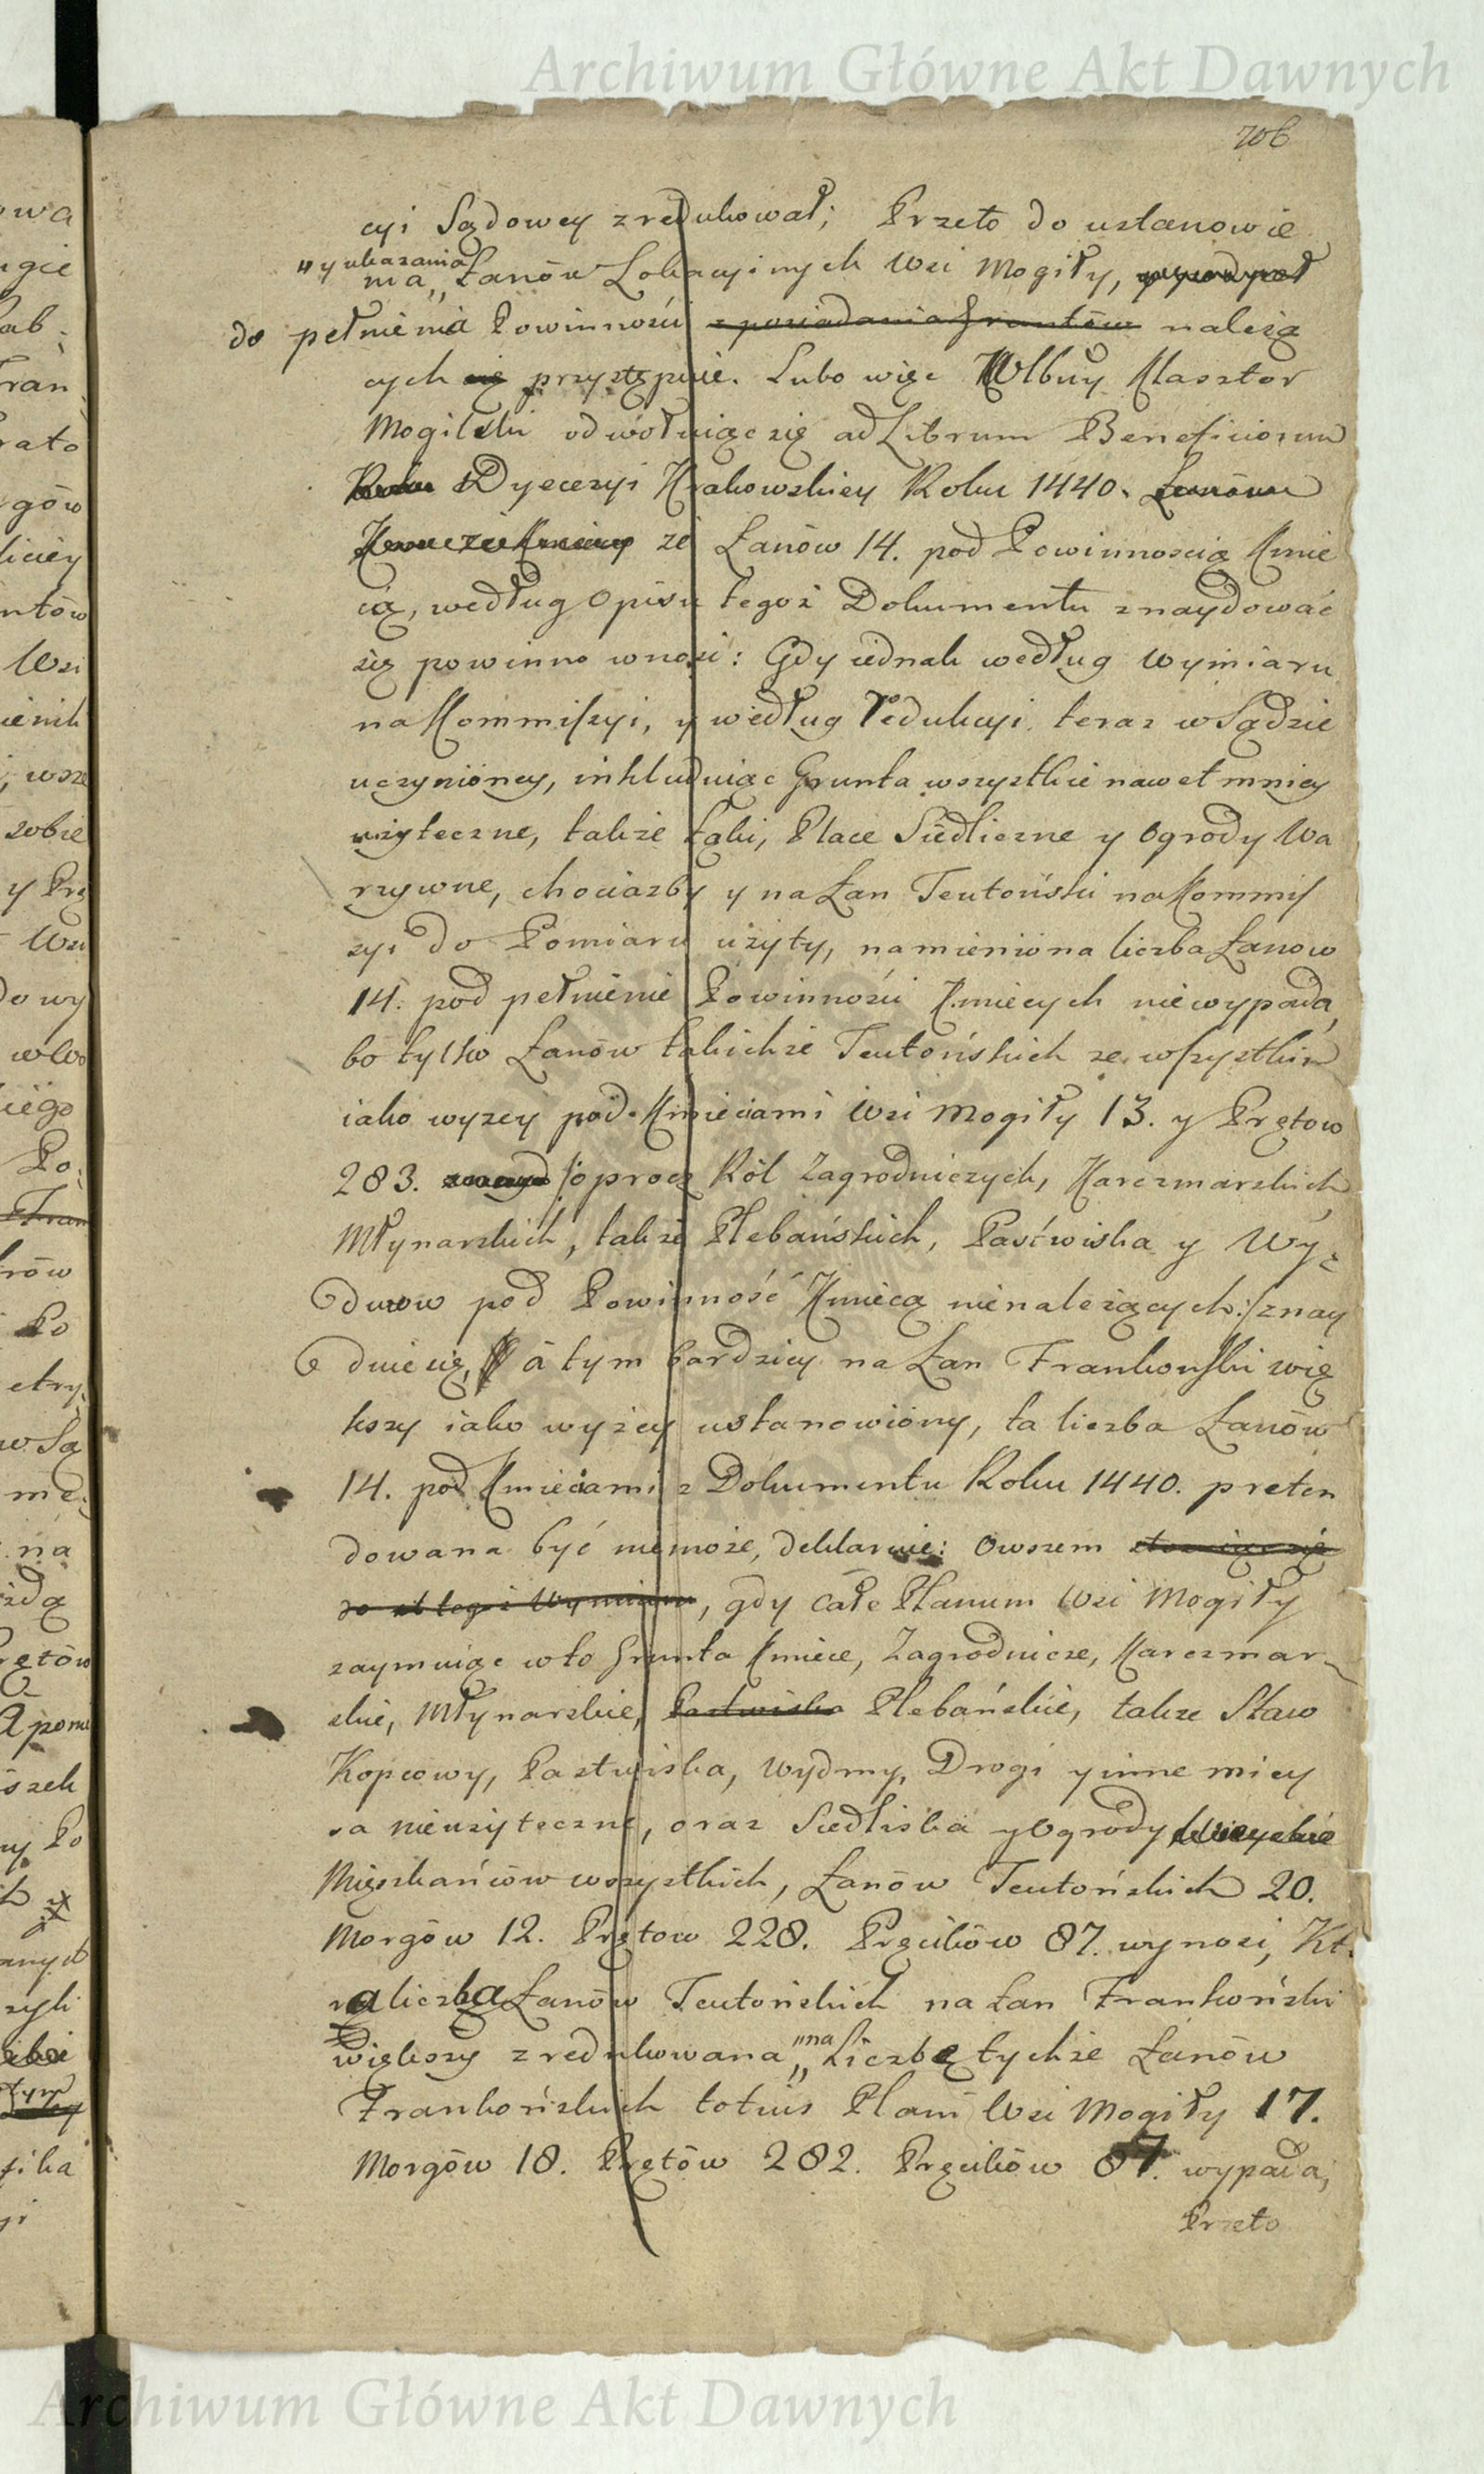 Archiwum Główne Akt Dawnych
706
cyi Sądowey zredukował; Przeto do ustanowie
"y ukazania
nia „ Łanów Lokacyinych Wsi Mogiły,
do pełnienia Powinności z posiadania Gruntów należą
cych się przystępuie. Lubo więc WJbny Klasztor
Mogilski odwołuiąc się ad Librum Beneficiorum
Roku Dyecezyi Krakowskiey Roku 1440. Łanów
ze Łanów 14. pod Powinnoscią Kmie
cią, według Opisu tegoż Dokumentu znaydować
się powinno wnosi: Gdy iednak według Wymiaru
na Kommiſsyi, y według Redukcyi teraz w Sądzie
uczynioney, inkluduiąc Grunta wszystkie nawet mniey
użyteczne, także Łąki, Place Siedliczne y Ogrody Wa
rzywne, chociażby y na Łan Teutoński na Kommiſ
syi do Pomiaru użyty, namieniona liczba Łanow
14. pod pełnienie Powinności Kmiecych niewypada,
bo tylko Łanów takichże Teutońskich ze wſzystkim
iako wyzey pod Kmieciami Wsi Mogiły 13. y Prętow
283. /:oprocz Ról Zagrodniczych, Karczmarskich
Młynarskich, także Plebańskich, Pastwiska y Wy-
dmow pod Powinność Kmiecą nienależących:/ znay
duie się, a tym bardziey na Łan Frankoński wię
kszy iako wyżey ustanowiony, ta liczba Łanów
14. pod Kmieciami z Dokumentu Roku 1440. preten
dowana być niemoże, deklaruie: Owszem stosuiąc się
do tegoż Wymiaru, gdy całe Planum Wsi Mogiły
zaymuiąc w to Grunta Kmiece, Zagrodnicze, Karczmar-
skie, Młynarskie, Pastwiska Plebańskie, także Staw
Kopcowy, Pastwiska, Wydmy, Drogi y inne miey
sa nieużyteczne, oraz Siedliska y Ogrody
Mięszkańców wszystkich, Łanów Teutońskich 20.
Morgów 12. Prętow 228. Pręcików 87. wynosi, Kt.
ra liczba Łanów Teutońskich na Łan Frankoński
większy zredukowana „ "na Liczbę tychże Łanów
Frankońskich totius Plani Wsi Mogiły 17.
Morgów 18. Prętów 282. Pręcików 87. wypada,
Przeto
Archiwum Główne Akt Dawnych